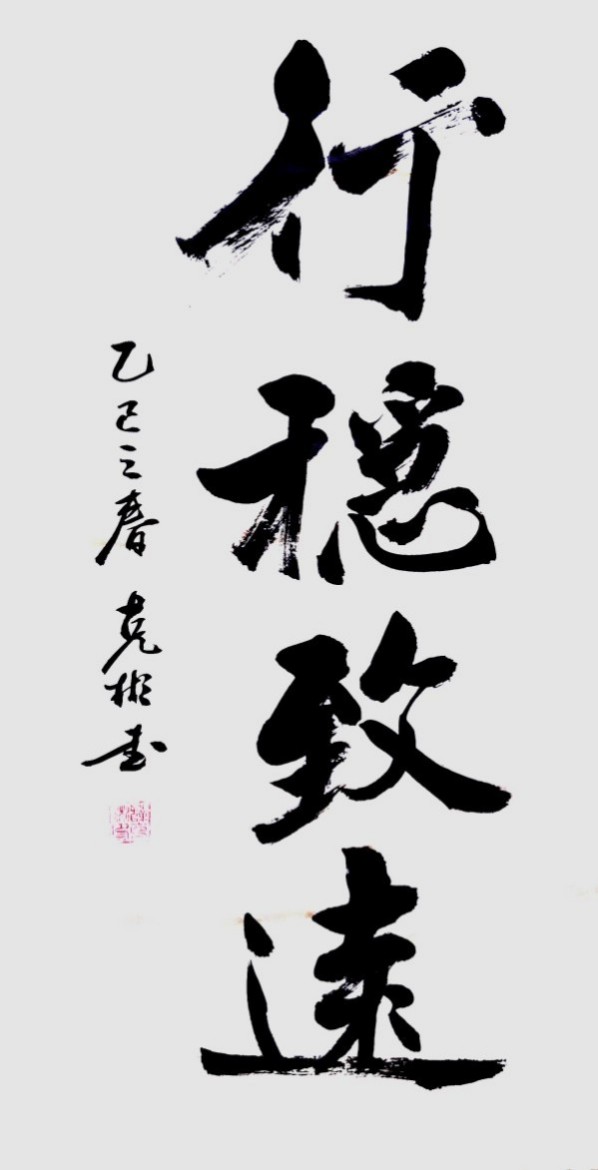 行穩致遠
乙巳之春 克彬书